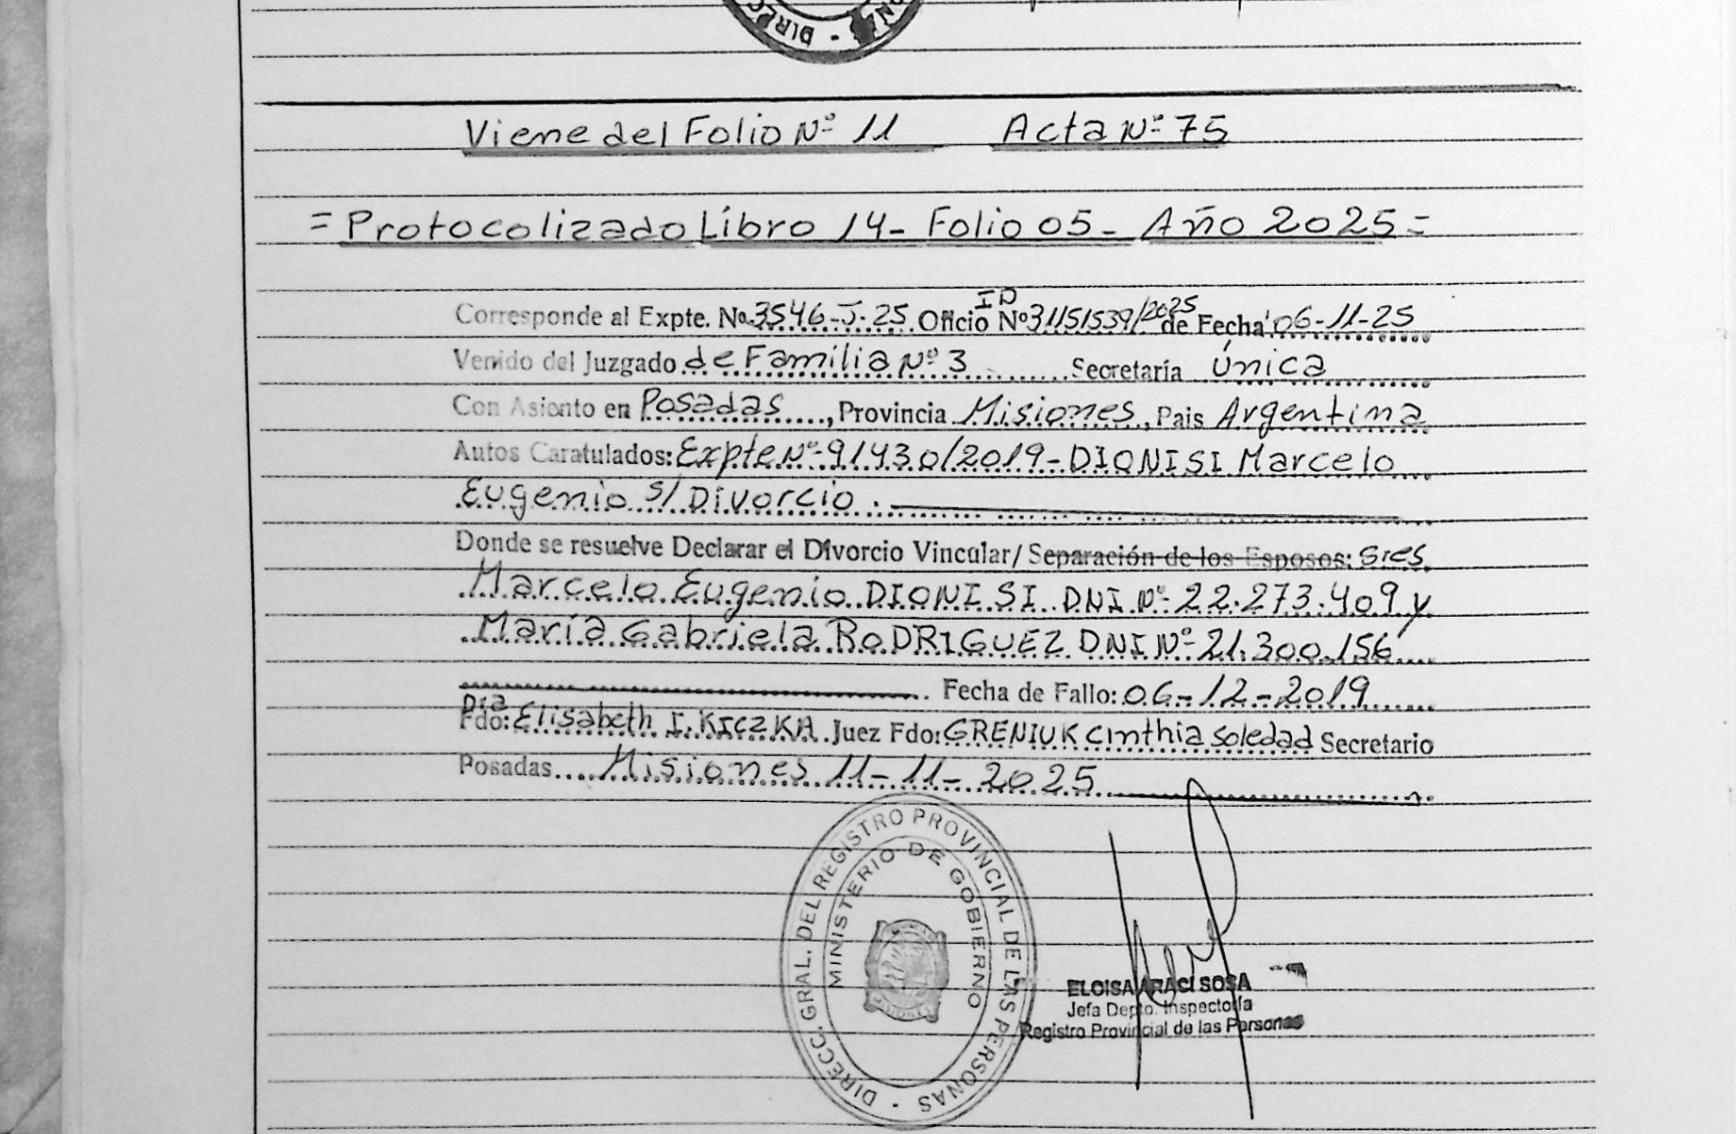 DIRECC
ONAS -
Viene del Folio Nº 11 Acta Nº 75
= Protocolizado Libro 14 - Folio 05 - Año 2025 =
Corresponde al Expte. No. 3546-J-25 Oficio ID Nº 31151539/2025 de Fecha 06-11-25
Venido del Juzgado de Familia Nº 3 Secretaría Única
Con Asiento en Posadas, Provincia Misiones, Pais Argentina
Autos Caratulados: Expte Nº 91430/2019 - DIONISI Marcelo
Eugenio s/ Divorcio.
Donde se resuelve Declarar el Divorcio Vincular/ Separación de los Esposos: Sres
Marcelo Eugenio DIONISI DNI Nº 22.273.409 y
María Gabriela RODRIGUEZ DNI Nº 21.300.156
Fecha de Fallo: 06-12-2019
Dra
Fdo: Elisabeth I. KICZKA Juez Fdo: GRENIUK Cinthia Soledad Secretario
Posadas Misiones 11-11-2025
DIRECC. GRAL. DEL REGISTRO PROVINCIAL DE LAS PERSONAS -
MINISTERIO DE GOBIERNO
ELOISA ARACI SOSA
Jefa Depto. Inspectoría
Registro Provincial de las Personas